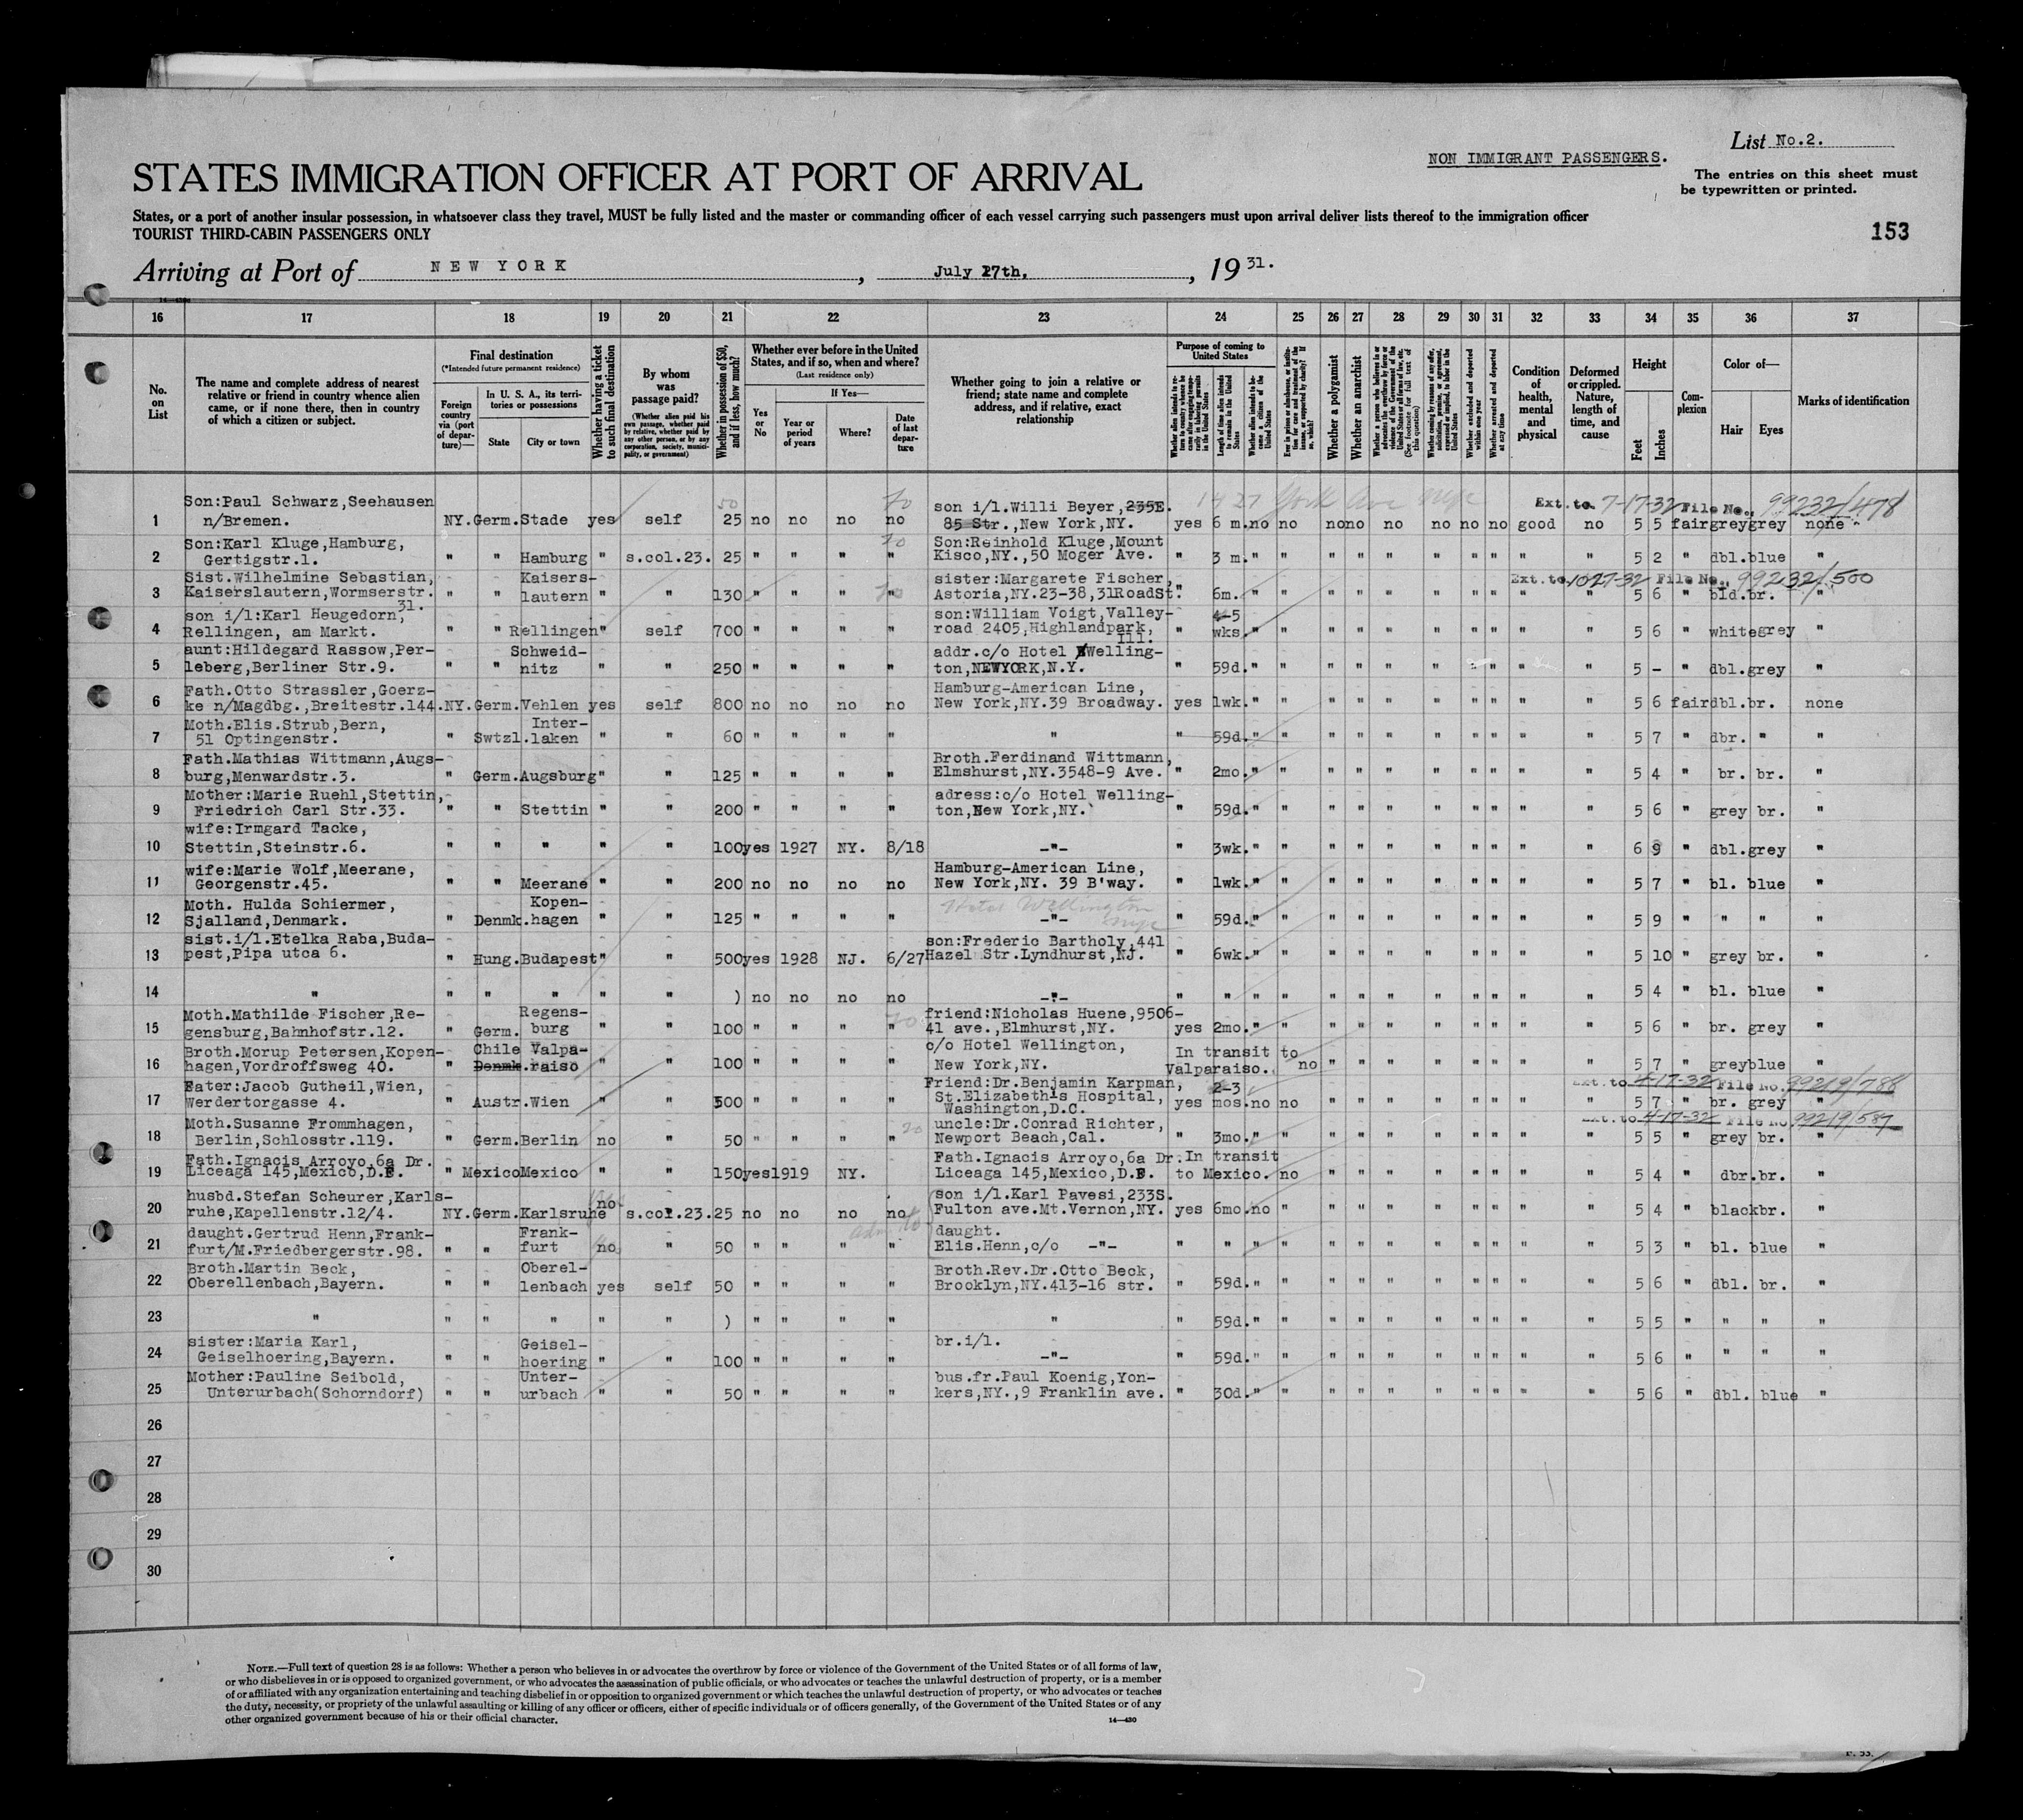 List No.2.
NON IMMIGRANT PASSENGERS.
STATES IMMIGRATION OFFICER AT PORT OF ARRIVAL
The entries on this sheet must
be typewritten or printed.
States, or a port of another insular possession, in whatsoever class they travel, MUST be fully listed and the master or commanding officer of each vessel carrying such passengers must upon arrival deliver lists thereof to the immigration officer
TOURIST THIRD-CABIN PASSENGERS ONLY
153
Arriving at Port of NEW YORK, July 27th, 1931.
16 17 18 19 20 21 22 23 24 25 26 27 28 29 30 31 32 33 34 35 36 37
No. on List
The name and complete address of nearest
relative or friend in country whence alien
came, or if none there, then in country
of which a citizen or subject.
Final destination
(*Intended future permanent residence)
Foreign country via (port of departure)—
In U. S. A., its territories or possessions
State City or town
Whether having a ticket to such final destination
By whom was passage paid?
(Whether alien paid his own passage, whether paid by relative, whether paid by any other person, or by any corporation, society, municipality, or government)
Whether in possession of $50, and if less, how much?
Whether ever before in the United States, and if so, when and where?
(Last residence only)
Yes or No
If Yes—
Year or period of years
Where?
Date of last departure
Whether going to join a relative or
friend; state name and complete
address, and if relative, exact
relationship
Purpose of coming to United States
Length of time alien intends to remain in the United States
Whether alien intends to become a citizen of the United States
Whether a polygamist
Whether an anarchist
Whether excluded and deported within one year
Whether arrested and deported at any time
Condition of health, mental and physical
Deformed or crippled. Nature, length of time, and cause
Height
Feet Inches
Complexion
Color of—
Hair Eyes
Marks of identification
Son:Paul Schwarz,Seehausen 50 son i/l.Willi Beyer,235E. 1427 York Ave Ext. to 7-17-32 File No. 99232/478
1 n/Bremen. NY. Germ. Stade yes self 25 no no no no 85 Str.,New York,NY. yes 6 m. no no no no no no no no good no 5 5 fair grey grey none
Son:Karl Kluge,Hamburg, Son:Reinhold Kluge,Mount
2 Gertigstr.1. " " Hamburg " s.col.23. 25 " " " " Kisco,NY.,50 Moger Ave. " 3 m. " " " " " " " " " " 5 2 " dbl. blue "
Sist.Wilhelmine Sebastian, Kaisers- sister:Margarete Fischer, Ext. to 10-27-32 File No. 99232/500
3 Kaiserslautern,Wormserstr. 31. " " lautern " " 130 " " " " Astoria,NY.23-38,31RoadSt. " 6m. " " " " " " " " " " 5 6 " bld. br. "
son i/l:Karl Heugedorn, son:William Voigt,Valley- 4-5
4 Rellingen, am Markt. " " Rellingen " self 700 " " " " road 2405,Highlandpark, Ill. " wks. " " " " " " " " " " 5 6 " white grey "
aunt:Hildegard Rassow,Per- Schweid- addr.c/o Hotel Welling-
5 leberg,Berliner Str.9. " " nitz " " 250 " " " " ton,NEWYORK,N.Y. " 59d. " " " " " " " " " " 5 - " dbl. grey "
Fath.Otto Strassler,Goerz- Hamburg-American Line,
6 ke n/Magdbg.,Breitestr.144. NY. Germ. Vehlen yes self 800 no no no no New York,NY.39 Broadway. yes 1wk. " " " " " " " " " " 5 6 fair dbl. br. none
Moth.Elis.Strub,Bern, Inter-
7 51 Optingenstr. " Swtzl. laken " " 60 " " " " " " 59d. " " " " " " " " " " 5 7 " dbr. " "
Fath.Mathias Wittmann,Augs- Broth.Ferdinand Wittmann,
8 burg,Menwardstr.3. " Germ. Augsburg " " 125 " " " " Elmshurst,NY.3548-9 Ave. " 2mo. " " " " " " " " " " 5 4 " br. br. "
Mother:Marie Ruehl,Stettin, adress:c/o Hotel Welling-
9 Friedrich Carl Str.33. " " Stettin " " 200 " " " " ton,New York,NY. " 59d. " " " " " " " " " " 5 6 " grey br. "
wife:Irmgard Tacke,
10 Stettin,Steinstr.6. " " " " " 100 yes 1927 NY. 8/18 -"- " 3wk. " " " " " " " " " " 6 9 " dbl. grey "
wife:Marie Wolf,Meerane, Hamburg-American Line,
11 Georgenstr.45. " " Meerane " " 200 no no no no New York,NY. 39 B'way. " 1wk. " " " " " " " " " " 5 7 " bl. blue "
Moth. Hulda Schiermer, Kopen- Hotel Wellington
12 Sjalland,Denmark. " Denmk. hagen " " 125 " " " " -"- " 59d. " " " " " " " " " " 5 9 " " " "
sist.i/l.Etelka Raba,Buda- son:Frederic Bartholy,441
13 pest,Pipa utca 6. " Hung. Budapest " " 500 yes 1928 NJ. 6/27 Hazel Str.Lyndhurst,NJ. " 6wk. " " " " " " " " " " 5 10 " grey br. "
14 " " " " " " ) no no no no -"- " " " " " " " " " " " " 5 4 " bl. blue "
Moth.Mathilde Fischer,Re- Regens- friend:Nicholas Huene,9506-
15 gensburg,Bahnhofstr.12. " Germ. burg " " 100 " " " " 41 ave.,Elmhurst,NY. yes 2mo. " " " " " " " " " " 5 6 " br. grey "
Broth.Morup Petersen,Kopen- Chile Valpa- c/o Hotel Wellington, In transit to
16 hagen,Vordroffsweg 40. " Denmk. raiso " " 100 " " " " New York,NY. Valparaiso. no " " " " " " " " 5 7 " grey blue "
Fater:Jacob Gutheil,Wien, Friend:Dr.Benjamin Karpman, 2-3 Ext. to 4-17-32 File No. 99219/788
17 Werdertorgasse 4. " Austr. Wien " " 500 " " " " St.Elizabeth's Hospital, Washington,D.C. yes mos. no no " " " " " " " " 5 7 " br. grey "
Moth.Susanne Frommhagen, uncle:Dr.Conrad Richter, Ext. to 4-17-32 File No. 99219/587
18 Berlin,Schlosstr.119. " Germ. Berlin no " 50 " " " " Newport Beach,Cal. " 3mo. " " " " " " " " " " 5 5 " grey br. "
Fath.Ignacis Arroyo,6a Dr. Fath.Ignacis Arroyo,6a Dr. In transit
19 Liceaga 145,Mexico,D.F. " Mexico Mexico " " 150 yes 1919 NY. Liceaga 145,Mexico,D.F. to Mexico. no " " " " " " " " 5 4 " dbr. br. "
husbd.Stefan Scheurer,Karls- son i/l.Karl Pavesi,233S.
20 ruhe,Kapellenstr.12/4. NY. Germ. Karlsruhe no s.col.23. 25 no no no no Fulton ave.Mt.Vernon,NY. yes 6mo. no " " " " " " " " " 5 4 " black br. "
daught.Gertrud Henn,Frank- Frank- daught.
21 furt/M.Friedbergerstr.98. " " furt no " 50 " " " " Elis.Henn,c/o -"- " " " " " " " " " " " " 5 3 " bl. blue "
Broth.Martin Beck, Oberel- Broth.Rev.Dr.Otto Beck,
22 Oberellenbach,Bayern. " " lenbach yes self 50 " " " " Brooklyn,NY.413-16 str. " 59d. " " " " " " " " " " 5 6 " dbl. br. "
23 " " " " " " ) " " " " " " 59d. " " " " " " " " " " 5 5 " " " "
sister:Maria Karl, Geisel- br.i/l.
24 Geiselhoering,Bayern. " " hoering " " 100 " " " " -"- " 59d. " " " " " " " " " " 5 6 " " " "
Mother:Pauline Seibold, Unter- bus.fr.Paul Koenig,Yon-
25 Unterurbach(Schorndorf) " " urbach " " 50 " " " " kers,NY.,9 Franklin ave. " 30d. " " " " " " " " " " 5 6 " dbl. blue "
26
27
28
29
30
NOTE.—Full text of question 28 is as follows: Whether a person who believes in or advocates the overthrow by force or violence of the Government of the United States or of all forms of law,
or who disbelieves in or is opposed to organized government, or who advocates the assassination of public officials, or who advocates or teaches the unlawful destruction of property, or is a member
of or affiliated with any organization entertaining and teaching disbelief in or opposition to organized government or which teaches the unlawful destruction of property, or who advocates or teaches
the duty, necessity, or propriety of the unlawful assaulting or killing of any officer or officers, either of specific individuals or of officers generally, of the Government of the United States or of any
other organized government because of his or their official character.
14—430